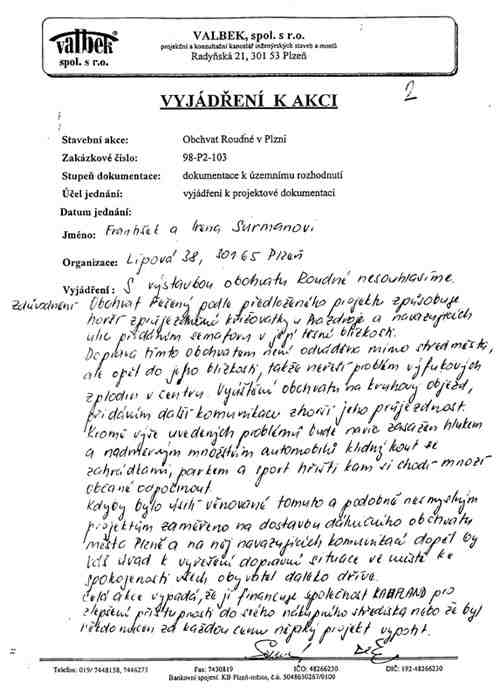 valbek
spol. s r.o.
VALBEK, spol. s r.o.
projekční a konsultační kancelář inženýrských staveb a mostů
Radyňská 21, 301 53 Plzeň
2
VYJÁDŘENÍ K AKCI
Stavební akce: Obchvat Roudné v Plzni
Zakázkové číslo: 98-P2-103
Stupeň dokumentace: dokumentace k územnímu rozhodnutí
Účel jednání: vyjádření k projektové dokumentaci
Datum jednání:
Jméno: František a Irena Šurmanovi
Organizace: Lipová 38, 30165 Plzeň
Vyjádření: S výstavbou obchvatu Roudné nesouhlasíme.
Zdůvodnění Obchvat řešený podle předloženého projektu způsobuje
horší zprůjezdnění křižovatky u a navazujících
ulic přidáním semaforu v její těsné blízkosti.
Doprava tímto obchvatem není odváděna mimo střed města,
ale opět do jeho blízkosti, takže neřeší problém výfukových
zplodin v centru. Vyústění obchvatu na kruhový objezd,
přidáním další komunikace zhorší jeho průjezdnost.
Kromě výše uvedených problémů bude navíc zasažen hlukem
a nadměrným množstvím automobilů klidný kout se
zahrádkami, parkem a sport. hřišti kam si chodí množí
občané odpočinout.
Kdyby bylo úsilí věnované tomuto a podobně nesmyslným
projektům zaměřeno na dostavbu dálničního obchvatu
města Plzně a na něj navazujících komunikací dospěl by
Váš úřad k vyřešení dopravní situace ve městě ke
spokojenosti všech obyvatel daleko dříve.
Celá akce vypadá, že ji financuje společnost KAUFLAND pro
zlepšení přístupnosti do svého nákupního střediska nebo že byl
za každou cenu nějaký projekt vypotit.
Telefon: 019/ 7448158, 7446273 Fax: 7430819 IČO: 48266230 DIČ: 192-48266230
Bankovní spojení: KB Plzeň-město, č.ú. 5048650267/0100